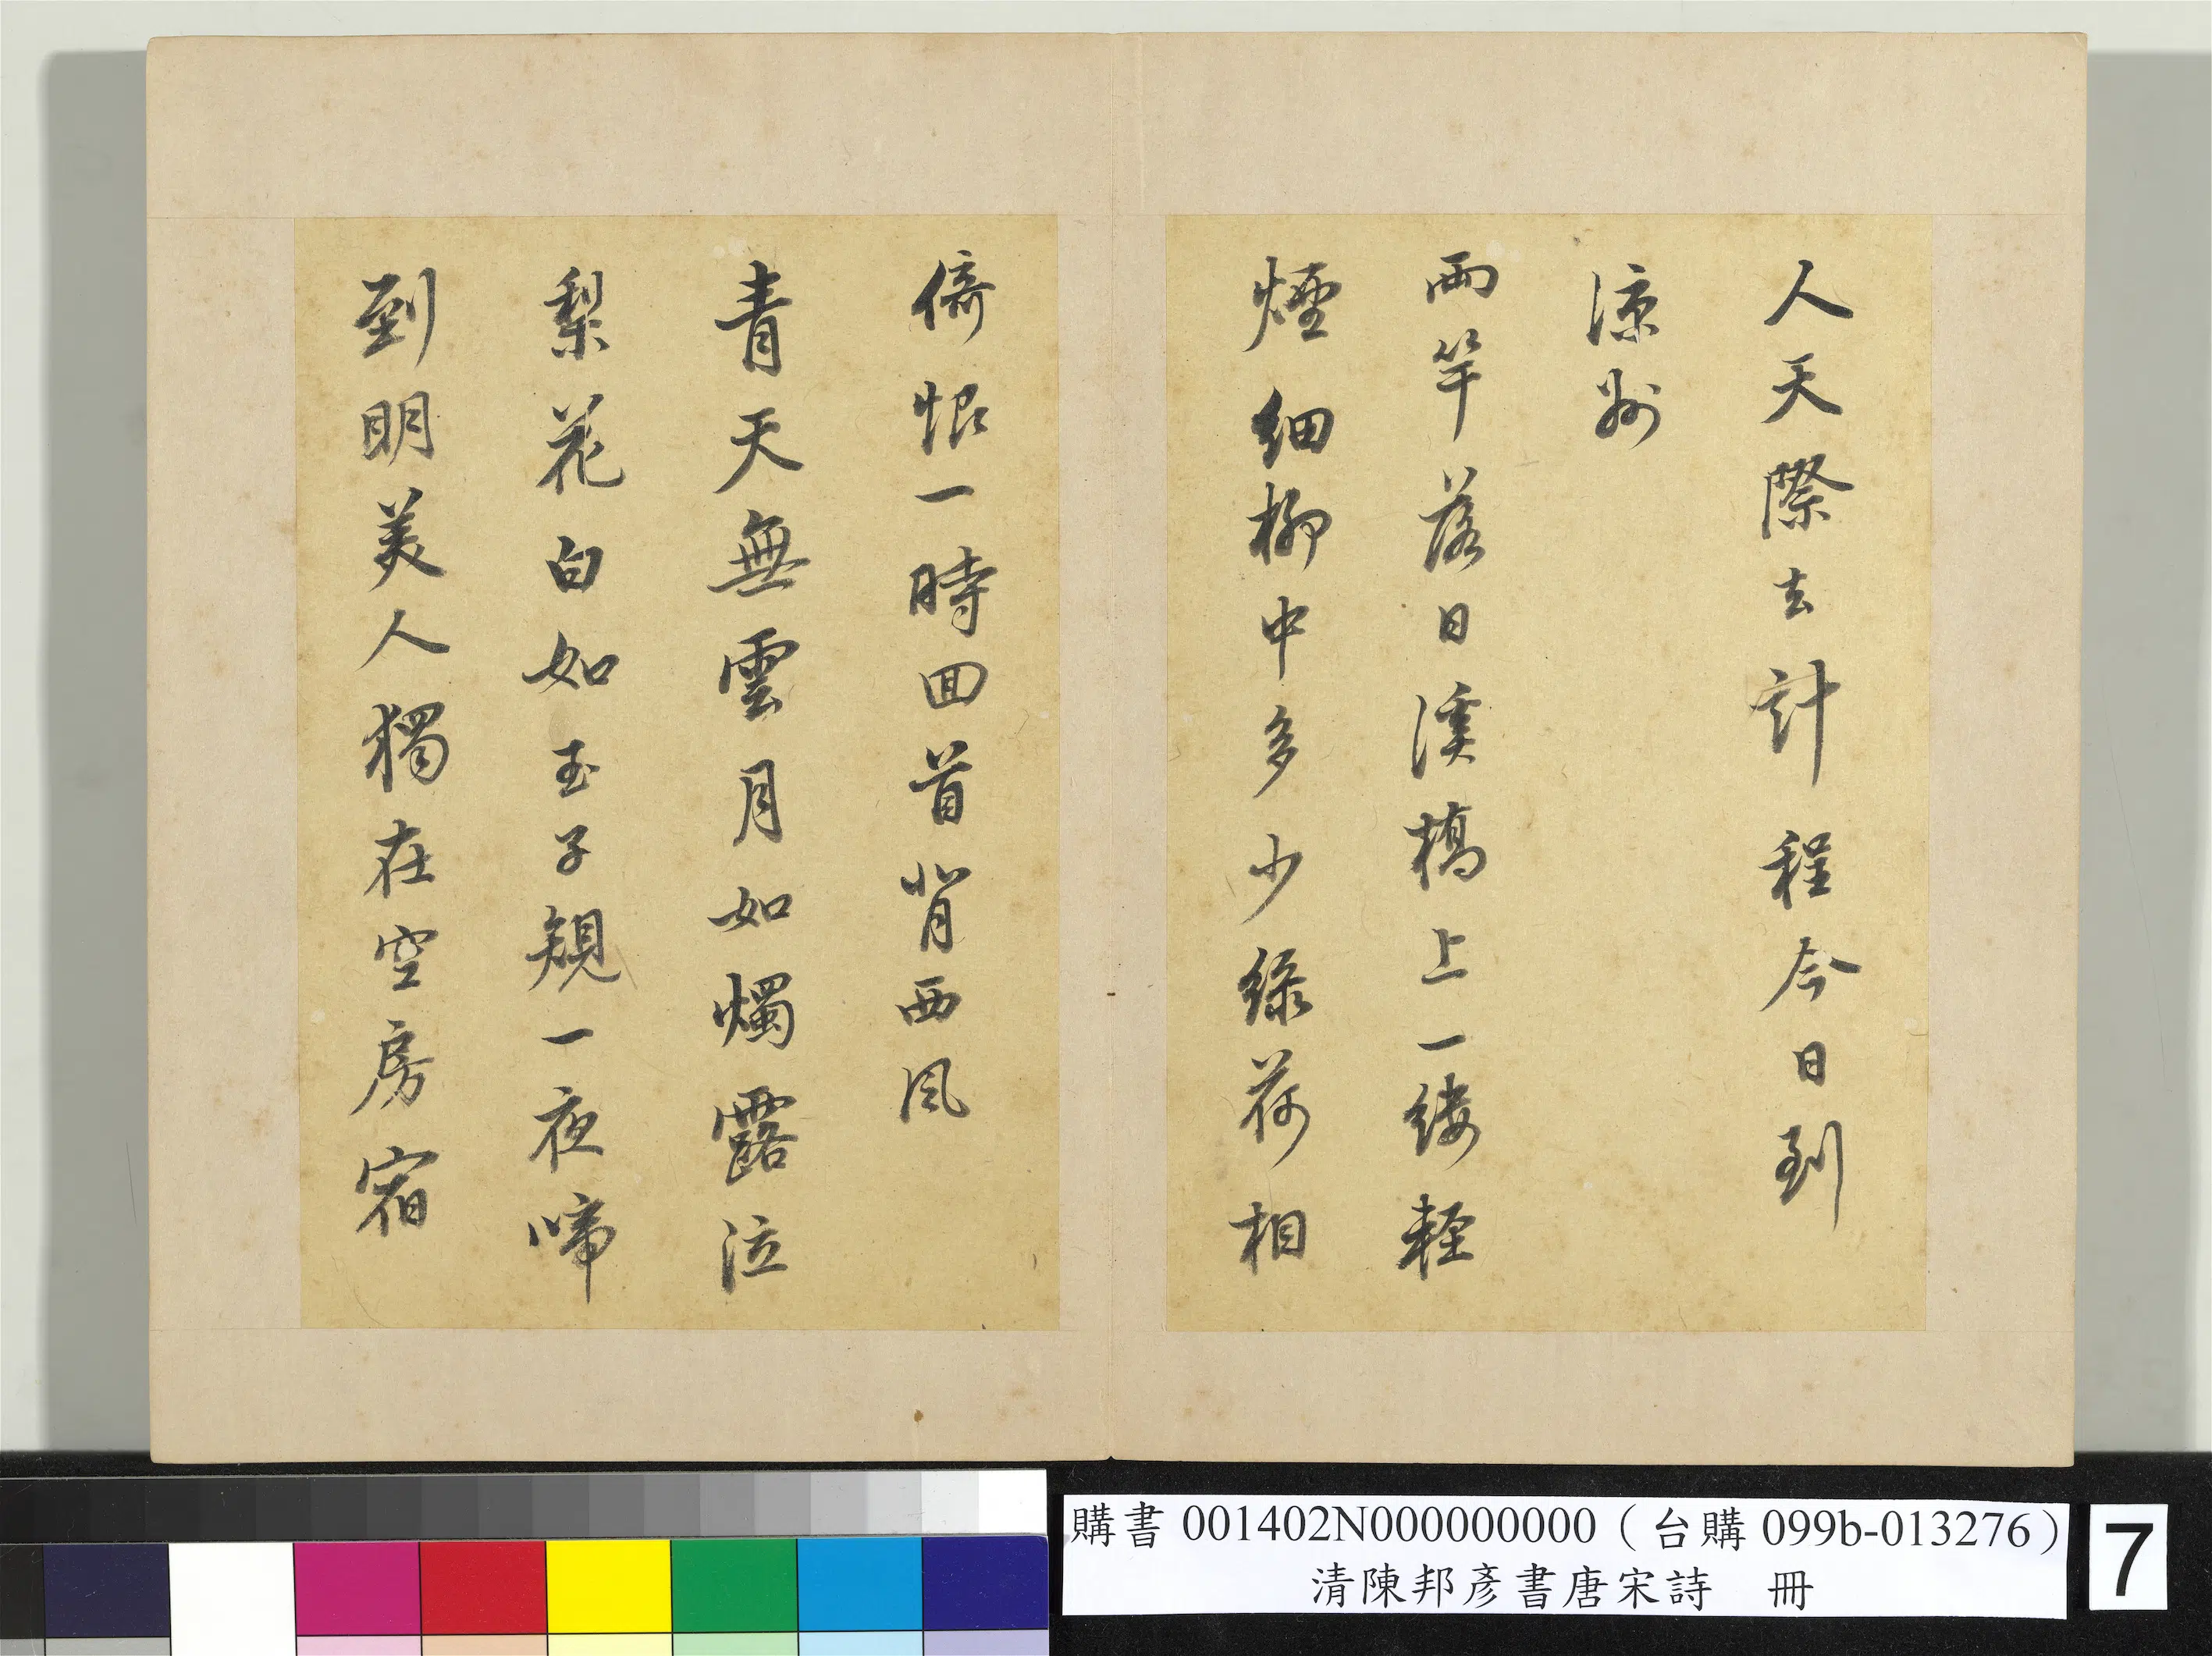 人天際去計程今日到
涼州
兩竿落日溪橋上一縷輕
煙細柳中多少綠荷相
倚恨一時回首背西風
青天無雲月如燭露泣
梨花白如玉子規一夜啼
到明美人獨在空房宿
購書 001402N000000000（台購 099b-013276）
清陳邦彥書唐宋詩 冊
7